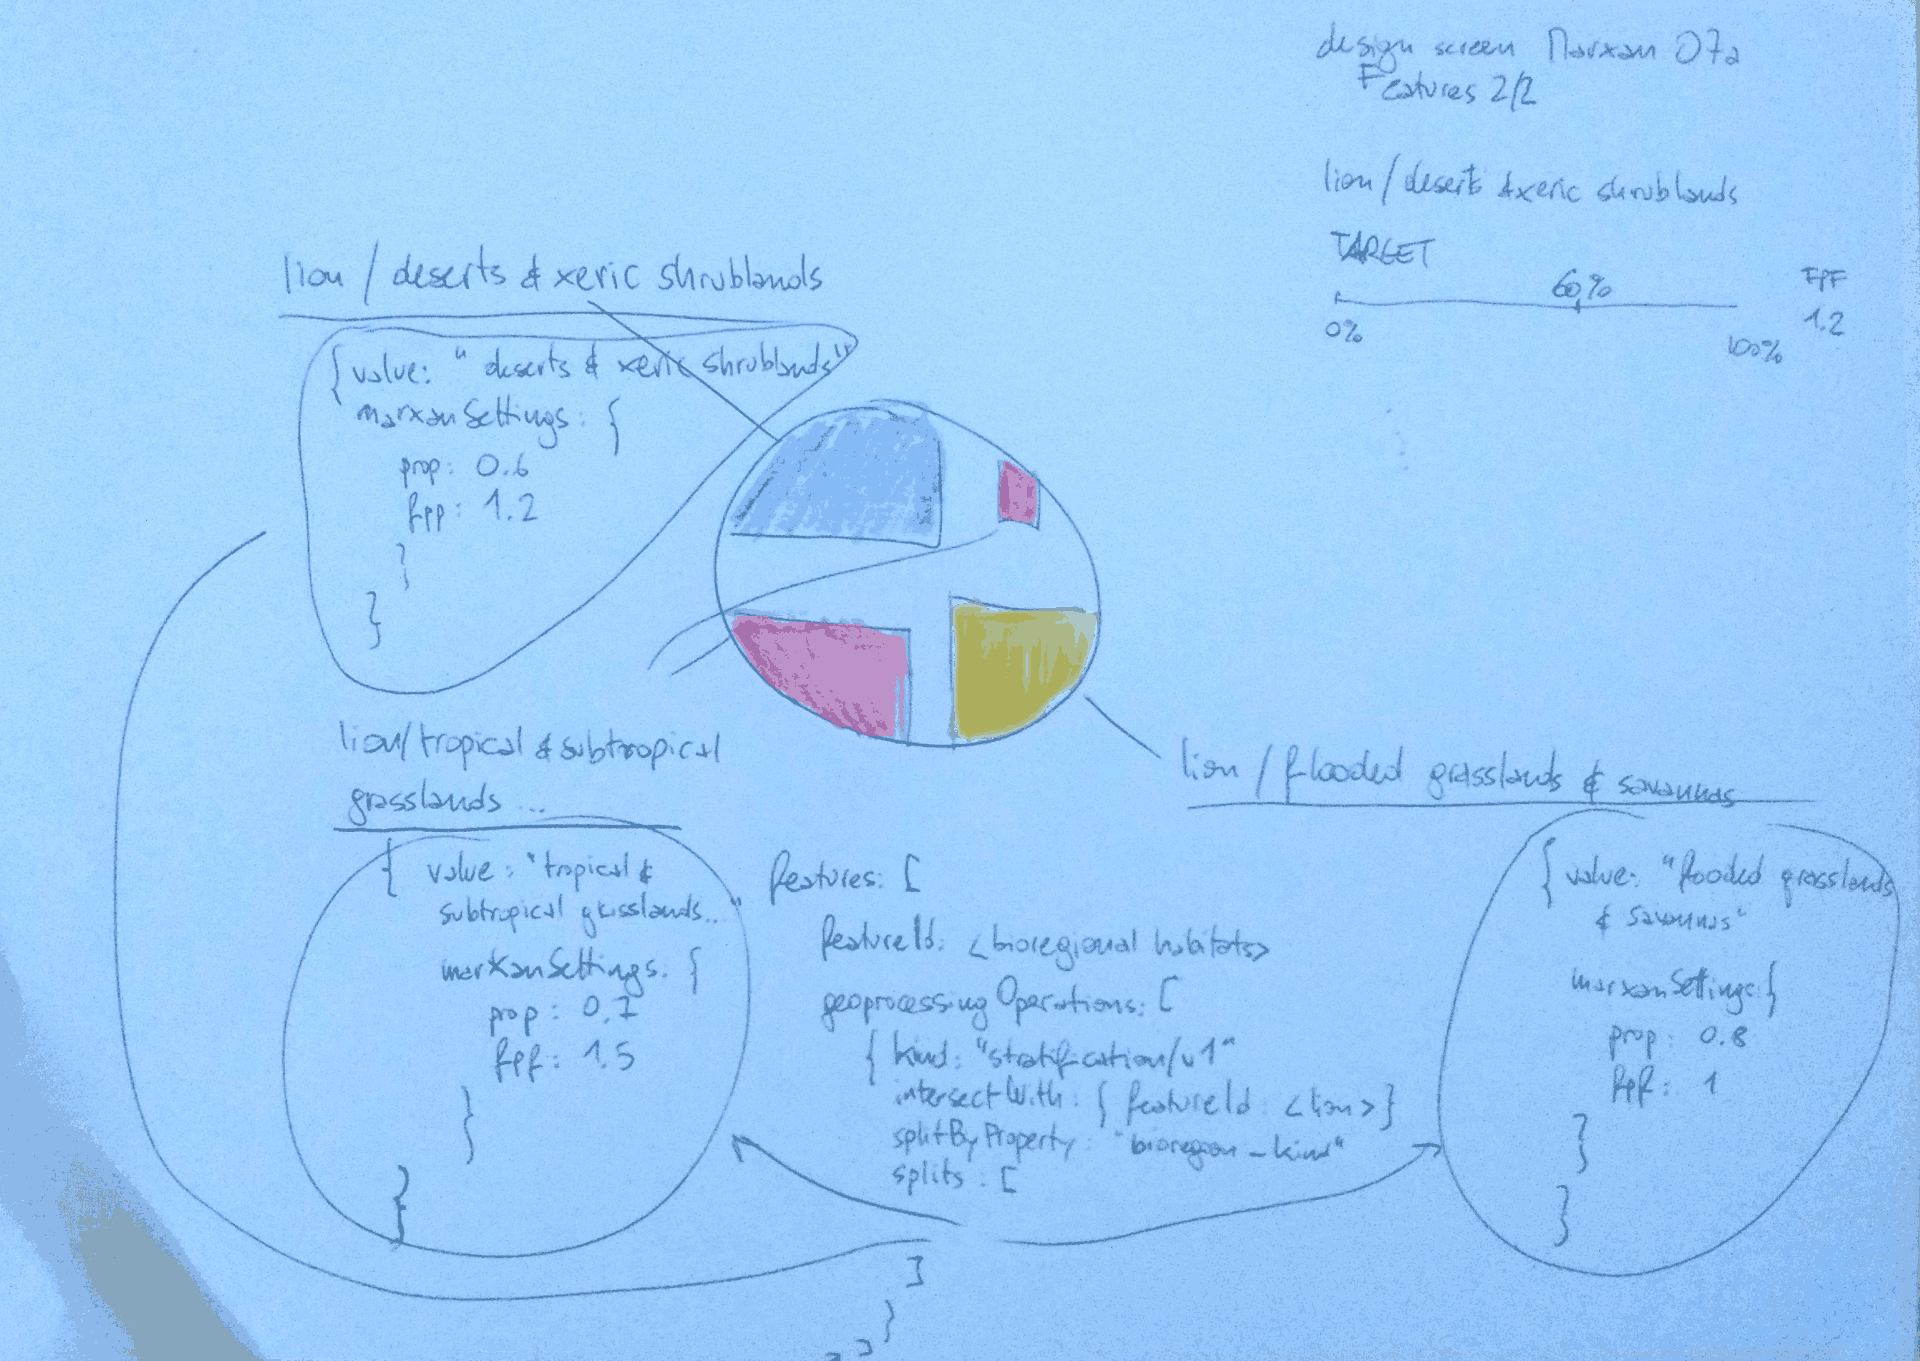 design screen Marxan 07a
Features 2/2
lion / deserts & xeric shrublands
TARGET
60%
FPF
0%
100%
1.2
lion / deserts & xeric shrublands
{ value: " deserts & xeric shrublands"
marxanSettings: {
prop: 0.6
fpp: 1.2
}
}
lion/tropical & subtropical
grasslands ...
{ value: "tropical &
subtropical grasslands..."
marxanSettings: {
prop:
fpf: 1.5
}
}
features: [
featureId: <bioregional habitats>
geoprocessingOperations: [
{ kind: "stratification/v1"
intersectWith: { featureId: <lion>}
splitByProperty: "bioregion_kind"
splits: [
]
}
lion / flooded grasslands & savannas
{ value: "flooded grasslands
& savannas"
marxanSettings: {
prop: 0.8
fpf: 1
}
}